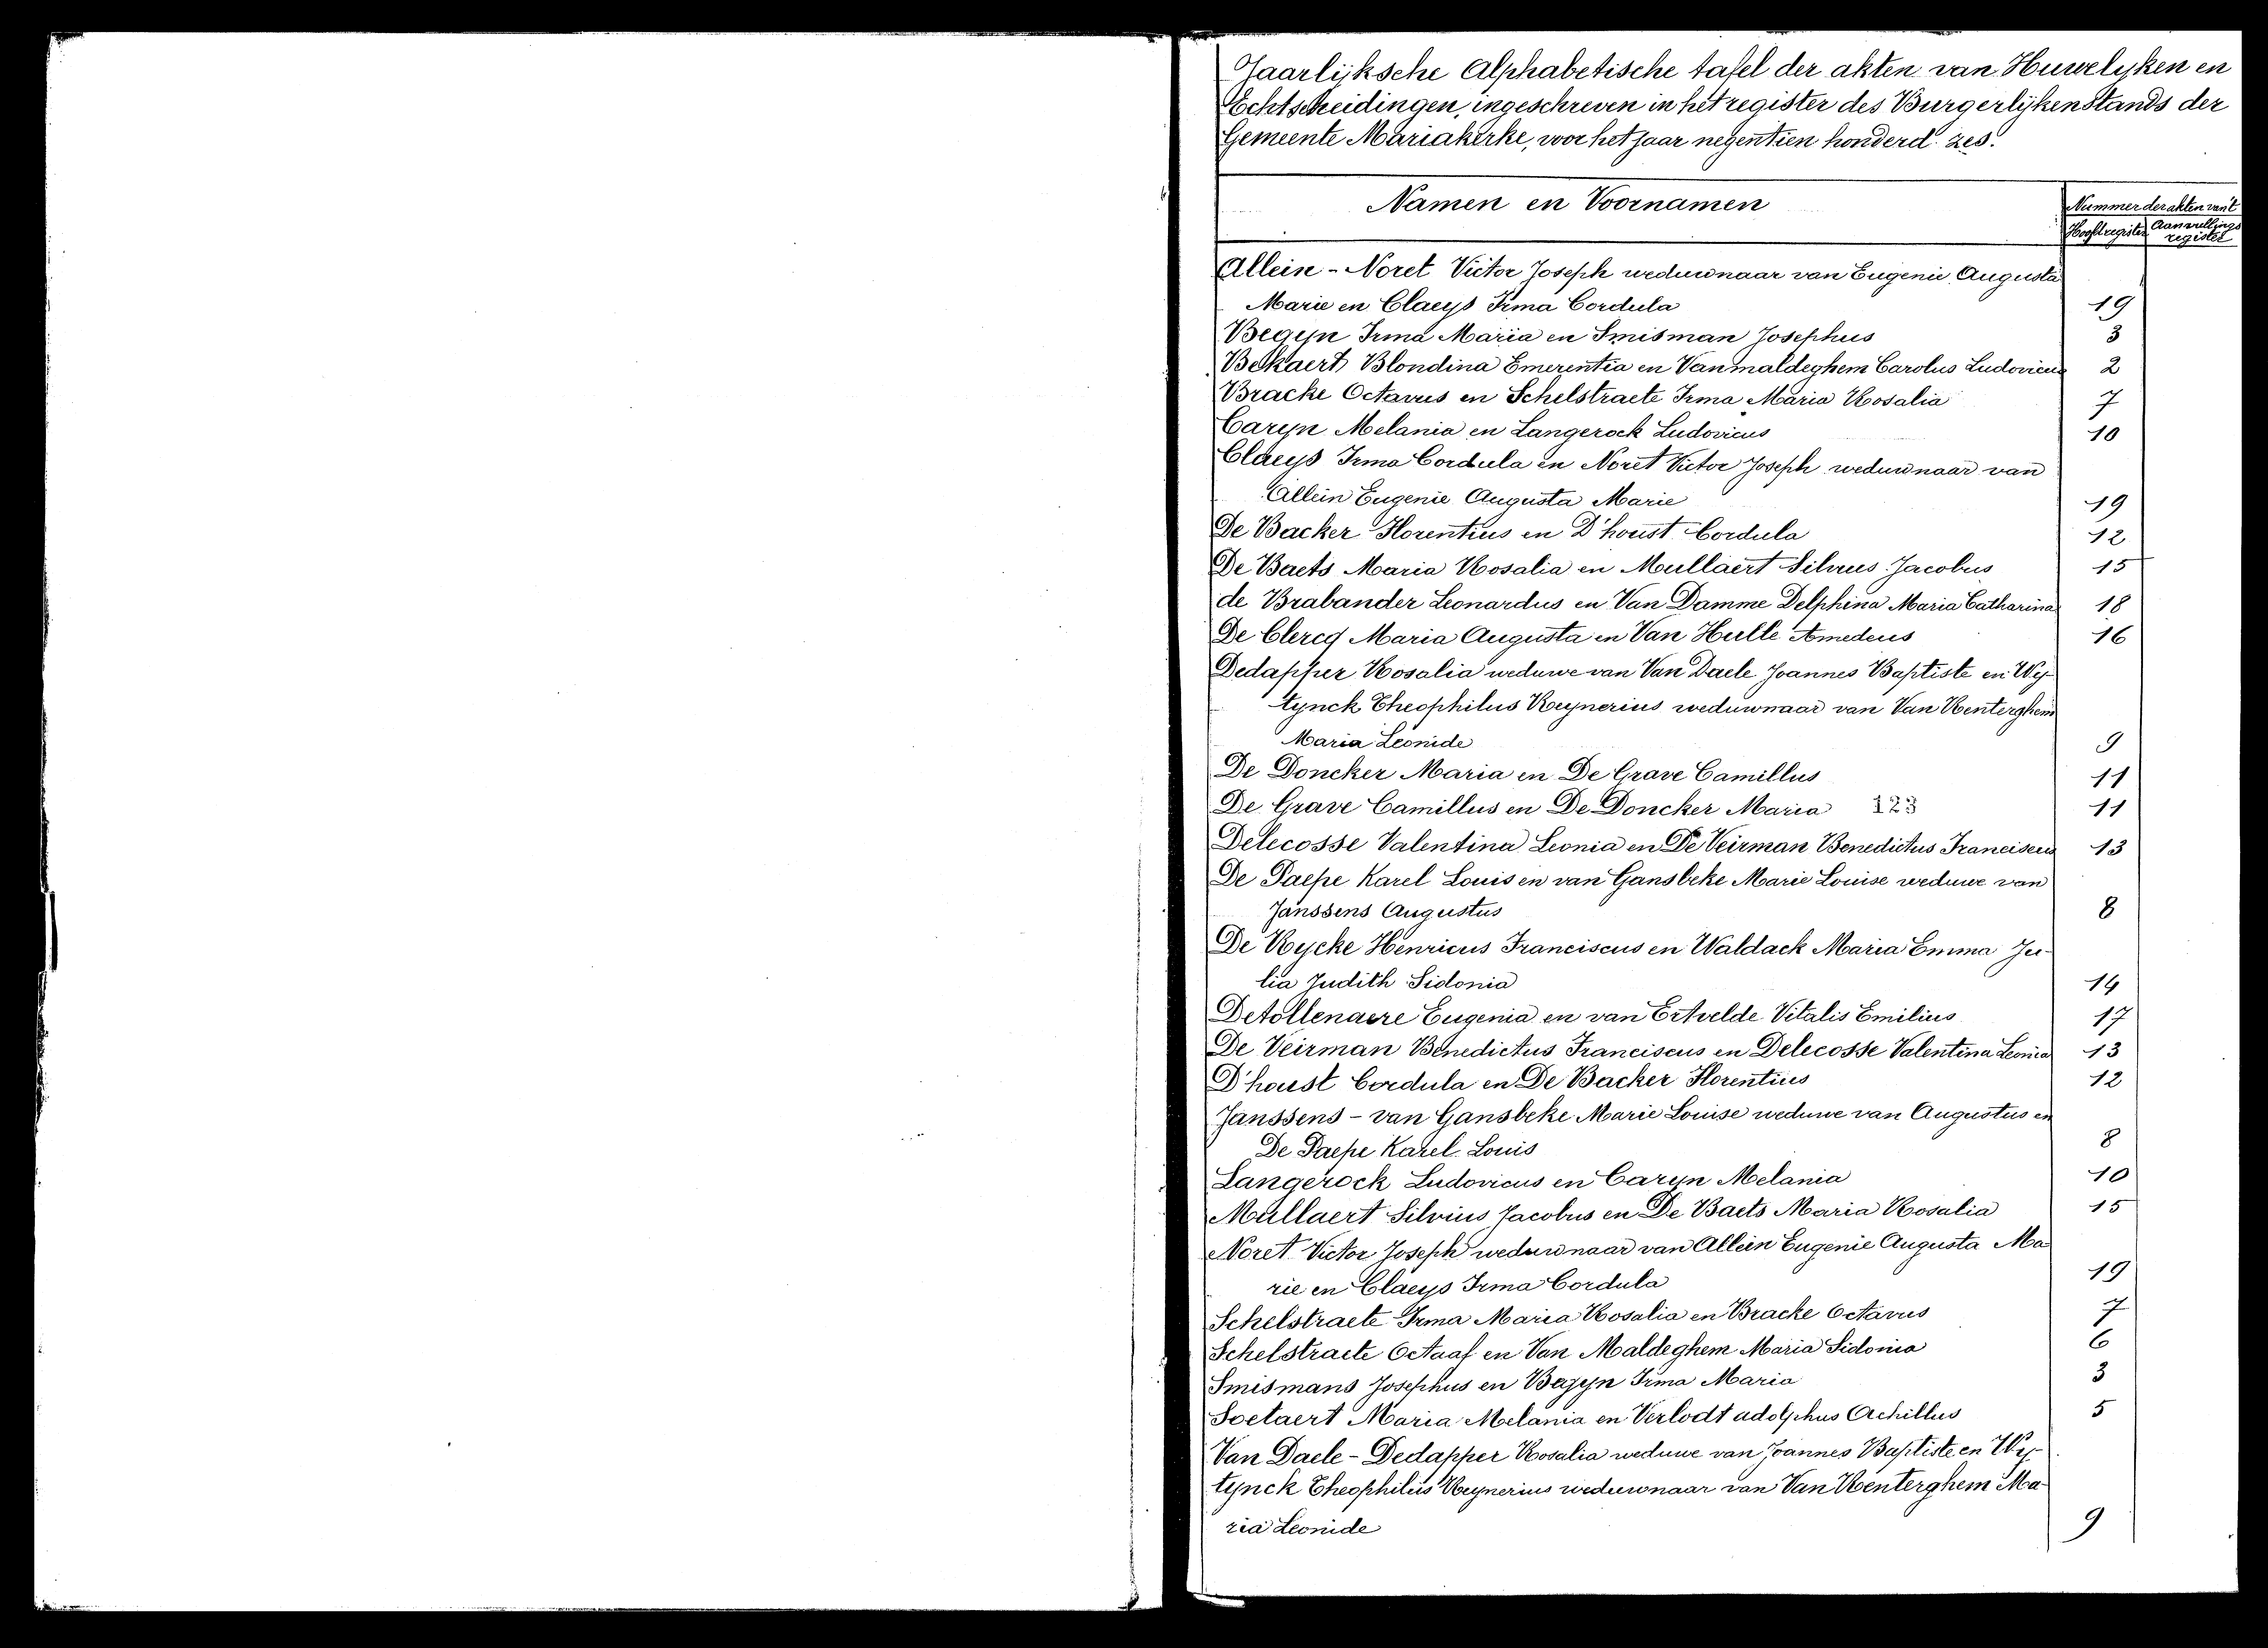 Jaarlijksche Alphabetische tafel der akten van Huwelyken en
Echtscheidingen, ingeschreven in het register des Burgerlijkenstands der
Gemeente Mariakerke, voor het jaar negentien honderd zes.
Namen en Voornamen
Nummer der akten van't
Hoofdregister Aanvullings
register
Allein - Noret Victor Joseph weduwnaar van Eugenie Augusta
Marie en Claeys Irma Cordula 19
Begyn Irma Maria en Smisman Josephus 3
Bekaert Blondina Emerentia en Vanmaldeghem Carolus Ludovicus 2
Bracke Octavus en Schelstraete Irma Maria Rosalia 7
Caryn Melania en Langerock Ludovicus 10
Claeys Irma Cordula en Noret Victor Joseph weduwnaar van
Allein Eugenie Augusta Marie 19
De Backer Florentius en D'houst Cordula 12
De Baets Maria Rosalia en Mullaert Silvius Jacobus 15
de Brabander Leonardus en Van Damme Delphina Maria Catharina 18
De Clercq Maria Augusta en Van Hulle Amedeus 16
Dedapper Rosalia weduwe van Van Daele Joannes Baptiste en Wy-
tynck Theophilus Reynerius weduwnaar van Van Renterghem
Maria Leonide 9
De Doncker Maria en De Grave Camillus 11
De Grave Camillus en De Doncker Maria 123 11
Delecosse Valentina Leonia en De Veirman Benedictus Franciscus 13
De Paepe Karel Louis en van Gansbeke Marie Louise weduwe van
Janssens Augustus 8
De Rycke Henricus Franciscus en Waldack Maria Emma Ju-
lia Judith Sidonia 14
Detollenaere Eugenia en van Ertvelde Vitalis Emilius 17
De Veirman Benedictus Franciscus en Delecosse Valentina Leonia 13
D'houst Cordula en De Backer Florentius 12
Janssens - van Gansbeke Marie Louise weduwe van Augustus en
De Paepe Karel Louis 8
Langerock Ludovicus en Caryn Melania 10
Mullaert Silvius Jacobus en De Baets Maria Rosalia 15
Noret Victor Joseph weduwnaar van Allein Eugenie Augusta Ma
rie en Claeys Irma Cordula 19
Schelstraete Irma Maria Rosalia en Bracke Octavus 7
Schelstraete Octaaf en Van Maldeghem Maria Sidonia 6
Smismans Josephus en Begyn Irma Maria 3
Soetaert Maria Melania en Verlodt adolphus Achillus 5
Van Daele - Dedapper Rosalia weduwe van Joannes Baptiste en Wy-
tynck Theophilus Reynerius weduwnaar van Van Renterghem Ma
ria Leonide 9